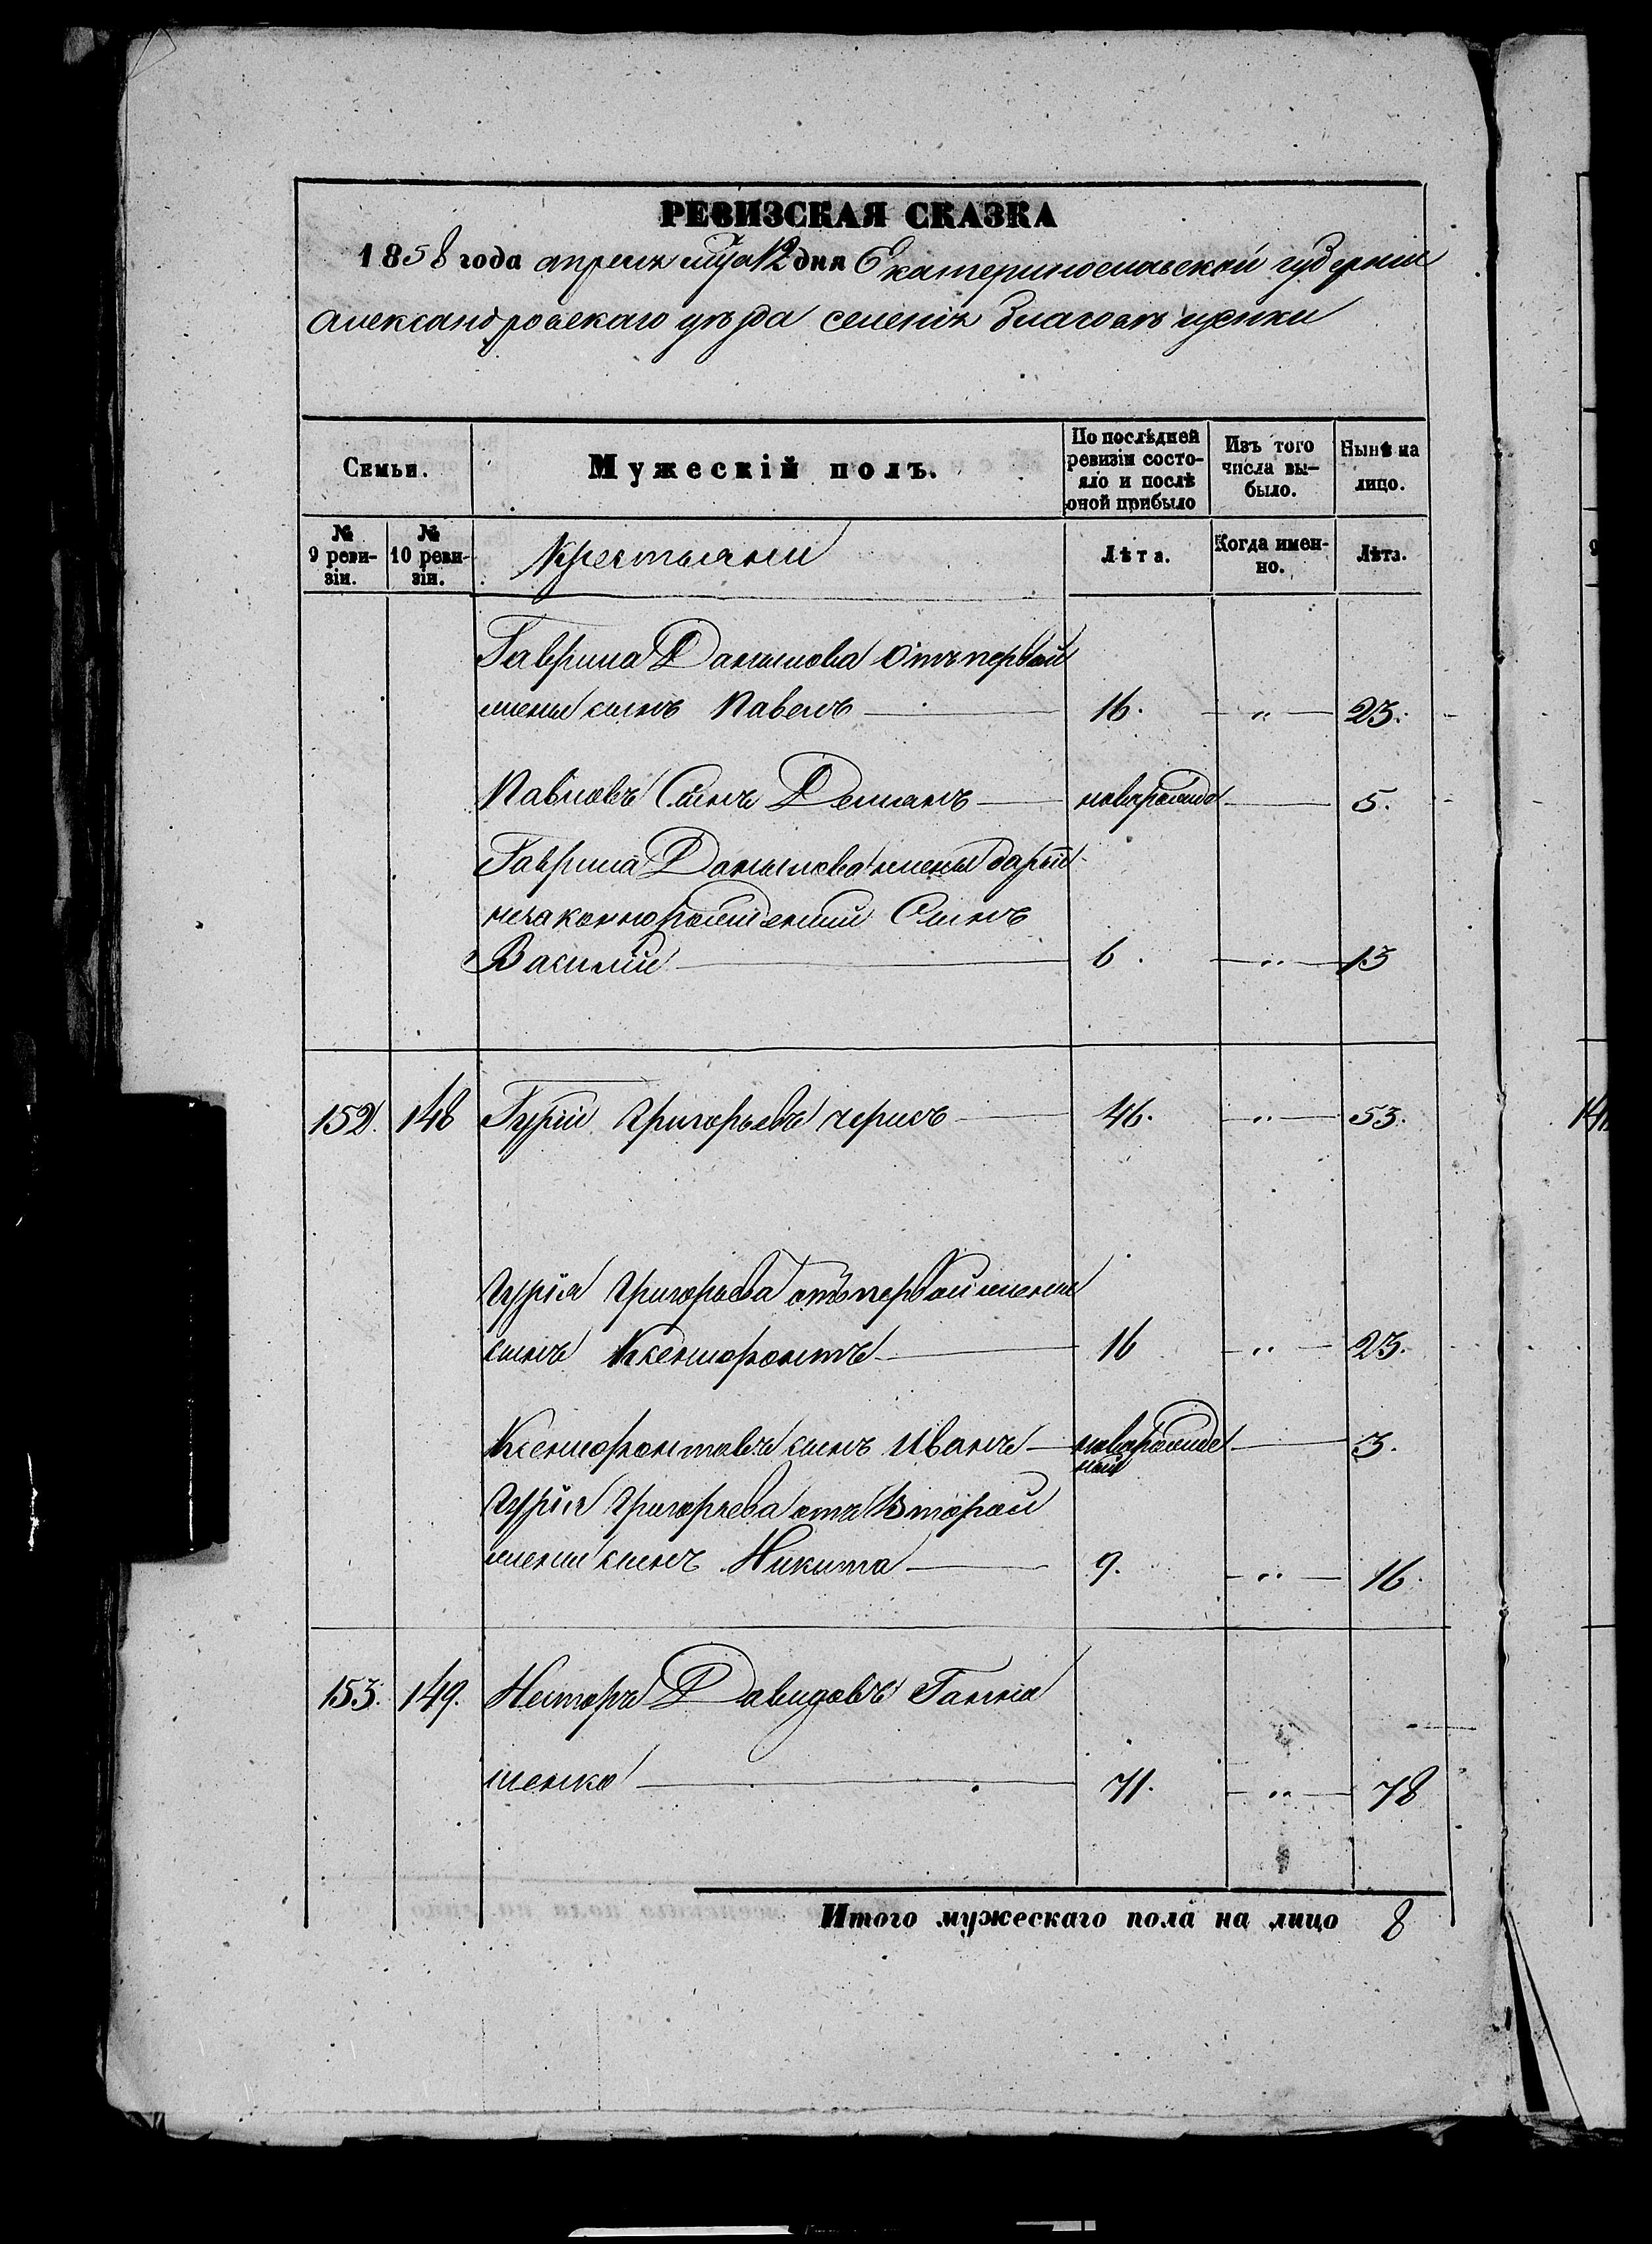 РЕВИЗСКАЯ СКАЗКА
1858 года апреля мца 12 дня Екатеринославской губернии
Александровскаго уѣзда селенія Благовѣщенки
Семьи.
Мужескій полъ.
По послѣдней ревизіи состояло и послѣ оной прибыло
Изъ того числа выбыло.
Нынѣ на лицо.
№ 9 ревизіи.
№ 10 ревизіи.
Крестьяни
Лѣта.
Когда именно.
Лѣта.
Гаврила Данилова отъ первой
жены сынъ Павелъ — 16. — „ — 23.
Павловъ Сынъ Демянъ — новорожде — 5.
Гаврила Данилова жены Дарьи
незаконнорожденный Сынъ
Василій — 6. — „ — 13
152. 148 Гурій Григорьевъ — 46. — „ — 53.
Гурія Григорьева отъ первой жены
сынъ Ксенофонтъ — 16 — „ — 23.
Ксенофонтовъ сынъ Иванъ — новорожде — 3.
ный
Гурія Григорьева отъ Второй
жены сынъ Никита — 9. — „ — 16.
153. 149. Несторъ Давидовъ
71. — „ — 78
Итого мужескаго пола на лицо 8